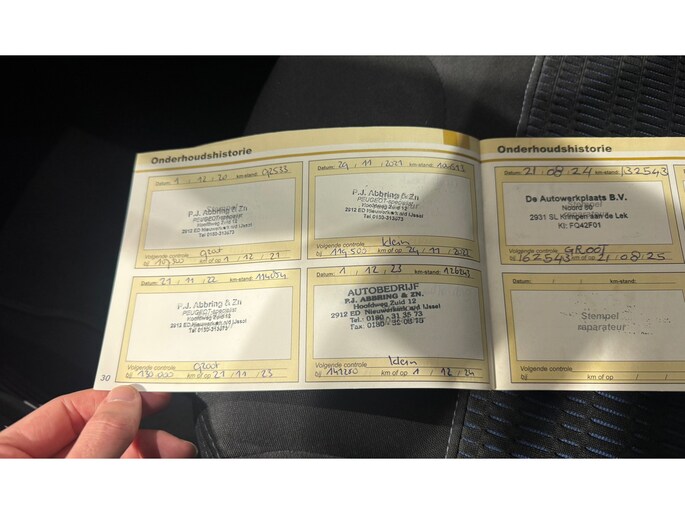 Onderhoudshistorie
Datum: 1 / 12 / 20 km-stand: 92533
P.J. Abbring & Zn
PEUGEOT-specialist
Hoofdweg Zuid 12
2912 ED Nieuwerkerk a/d IJssel
Tel 0180-313573
Volgende controle groot
bij km of op 1 / 12 / 21
Datum: 29 / 11 / 2021 km-stand:
P.J. Abbring & Zn
PEUGEOT-specialist
Hoofdweg Zuid 12
2912 ED Nieuwerkerk a/d IJssel
Tel 0180-313573
Volgende controle klein
bij 119.500 km of op 29 / 11 / 2022
Datum: 21 / 11 / 22 km-stand:
P.J. Abbring & Zn
PEUGEOT-specialist
Hoofdweg Zuid 12
2912 ED Nieuwerkerk a/d IJssel
Tel 0180-313573
Volgende controle groot
bij 130.000 km of op 21 / 11 / 23
Datum: 1 / 12 / 23 km-stand:
AUTOBEDRIJF
P.J. ABBRING & ZN.
Hoofdweg Zuid 12
2912 ED Nieuwerkerk a/d IJssel
Tel.: 0180 - 31 35 73
Fax: 0180
Volgende controle klein
bij km of op 1 / 12 / 24
30
Onderhoudshistorie
Datum: 21 / 08 / 24 km-stand: 132543
De Autowerkplaats B.V.
Noord 60
2931 SL Krimpen aan de Lek
KI: FQ42F01
Volgende controle GROOT
bij 162543 km of op 21 / 08 / 25
Stempel
reparateur
Volgende controle
bij km of op / /